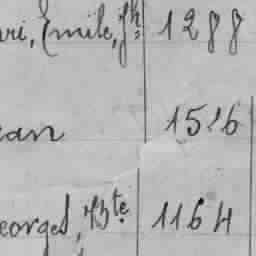 ri, Emile, Jh 1288
ean 1516
eorges, Bte 1164